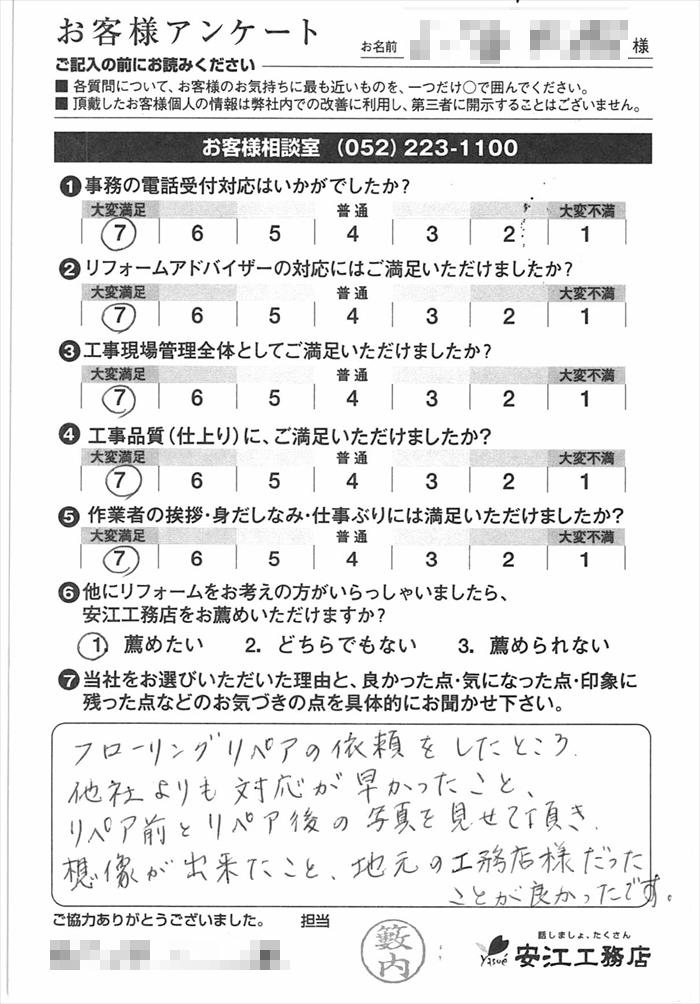 お客様アンケート
お名前 様
ご記入の前にお読みください
■ 各質問について、お客様のお気持ちに最も近いものを、一つだけ○で囲んでください。
■ 頂戴したお客様個人の情報は弊社内での改善に利用し、第三者に開示することはございません。
お客様相談室 (052) 223-1100
❶ 事務の電話受付対応はいかがでしたか?
大変満足 普通 大変不満
7 6 5 4 3 2 1
❷ リフォームアドバイザーの対応にはご満足いただけましたか?
大変満足 普通 大変不満
7 6 5 4 3 2 1
❸ 工事現場管理全体としてご満足いただけましたか?
大変満足 普通 大変不満
7 6 5 4 3 2 1
❹ 工事品質(仕上り)に、ご満足いただけましたか?
大変満足 普通 大変不満
7 6 5 4 3 2 1
❺ 作業者の挨拶・身だしなみ・仕事ぶりには満足いただけましたか?
大変満足 普通 大変不満
7 6 5 4 3 2 1
❻ 他にリフォームをお考えの方がいらっしゃいましたら、
安江工務店をお薦めいただけますか?
1. 薦めたい 2. どちらでもない 3. 薦められない
❼ 当社をお選びいただいた理由と、良かった点・気になった点・印象に
残った点などのお気づきの点を具体的にお聞かせ下さい。
フローリングリペアの依頼をしたところ、
他社よりも対応が早かったこと、
リペア前とリペア後の写真を見せて頂き、
想像が出来たこと、地元の工務店様だった
ことが良かったです。
ご協力ありがとうございました。 担当
籔内
話しましょ、たくさん
Yasué 安江工務店